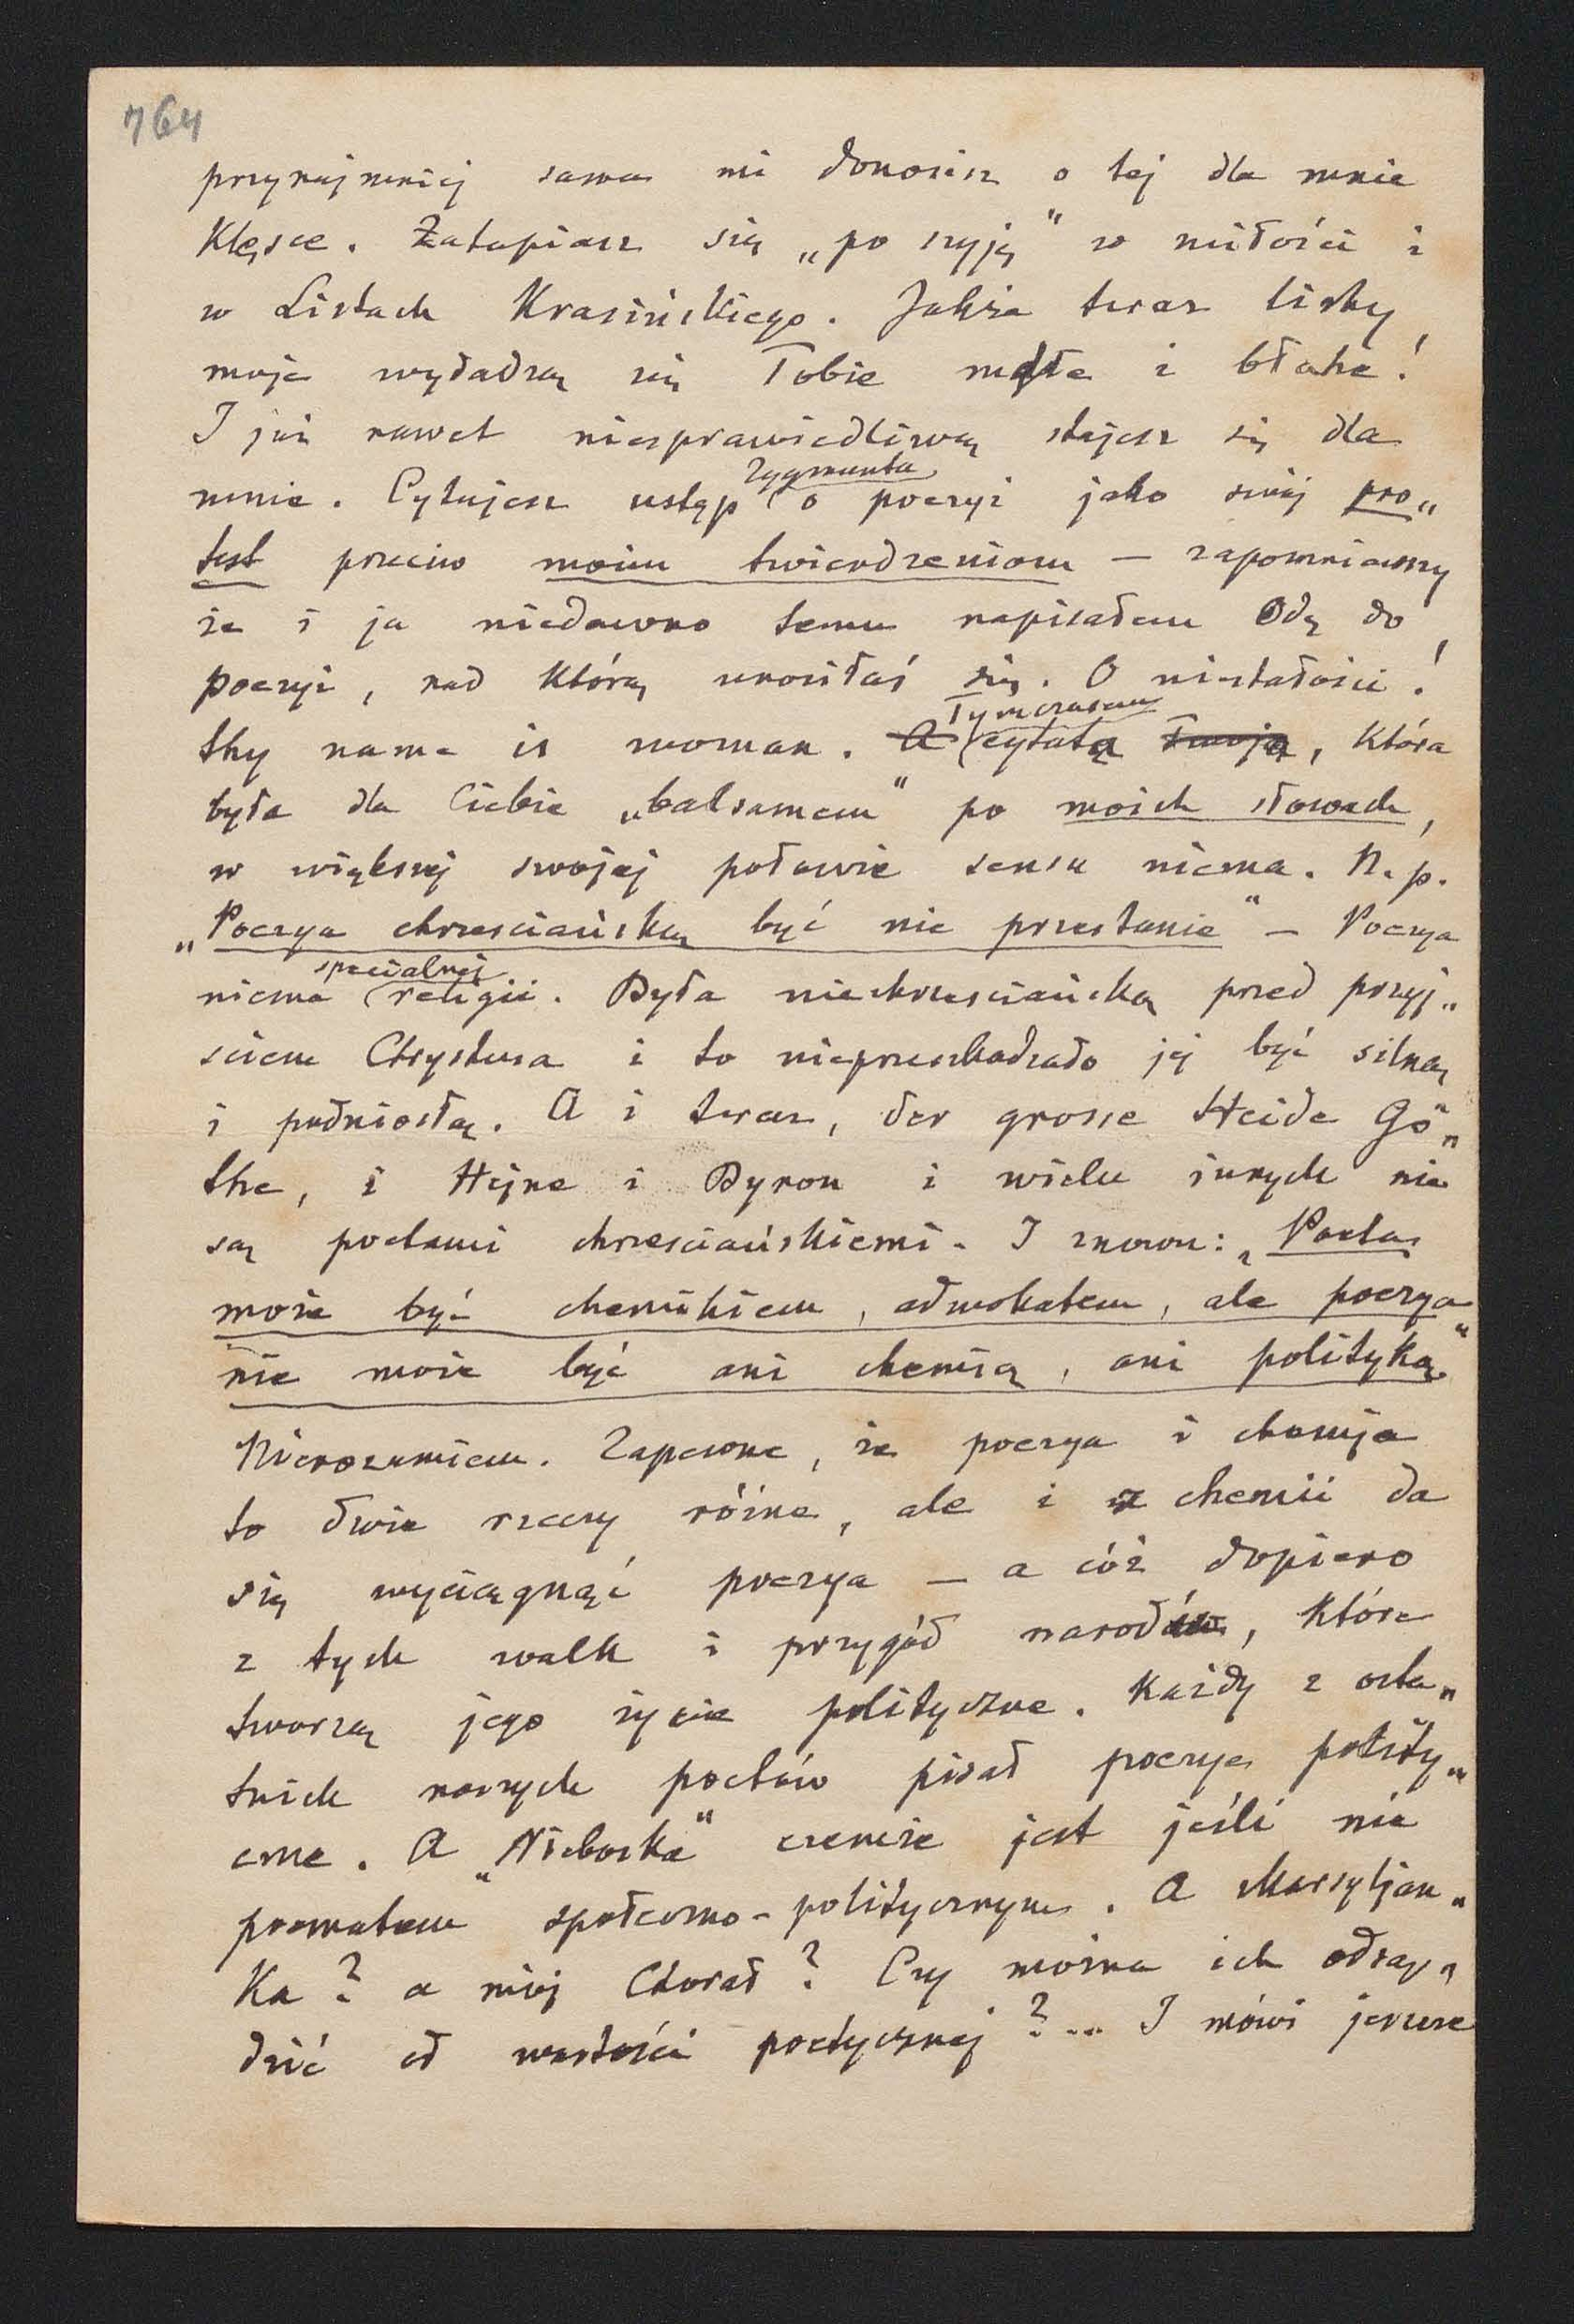 764
przynajmniej sama mi donosisz o tej dla mnie
klęsce. Zatapiasz się „po szyję" w miłości i
w Listach Krasińskiego. Jakże teraz listy
moje wydadzą się Tobie mdłe i błahe!
I już nawet niesprawiedliwą stajesz się dla
mnie. Cytujesz ustęp Zygmunta o poezyi jako swój pro„
test przeciw moim twierdzeniom — zapomniawszy
że i ja niedawno temu napisałem Odę do
poezyi, nad którą unosiłaś się. O niestałości!
thy name is woman. A Tymczasem cytata Twoja, która
była dla Ciebie „balsamem" po moich słowach,
w większej swojej połowie sensu niema. N.p.
„Poezya chrześciańską być nie przestanie" — Poezya
niema specialnej religii. Była niechrześciańską przed przyj„
sciem Chrystusa i to nieprzeszkadzało jej być silną
i podniosłą. A i teraz, der grosse Heide Gö„
the, i Hejne i Byron i wielu innych nie
są poetami chrześciańskiemi. I znowu: „Poeta
może być chemikiem, adwokatem, ale poezya
nie może być ani chemią, ani polityką"
Nierozumiem. Zapewne, że poezya i chemija
to dwie rzeczy różne, ale i z chemii da
się wyciągnąć poezya — a cóż dopiero
z tych walk i przygód narodów, które
tworzą jego życie polityczne. Każdy z osta„
tnich naszych poetów pisał poezye polity„
czne. A „Nieboska" czemże jest jeśli nie
poematem społeczno-politycznym. A Marsyljan„
ka? a mój Chorał? Czy można ich odsą„
dzić od wartości poetycznej?... I mówi jeszcze